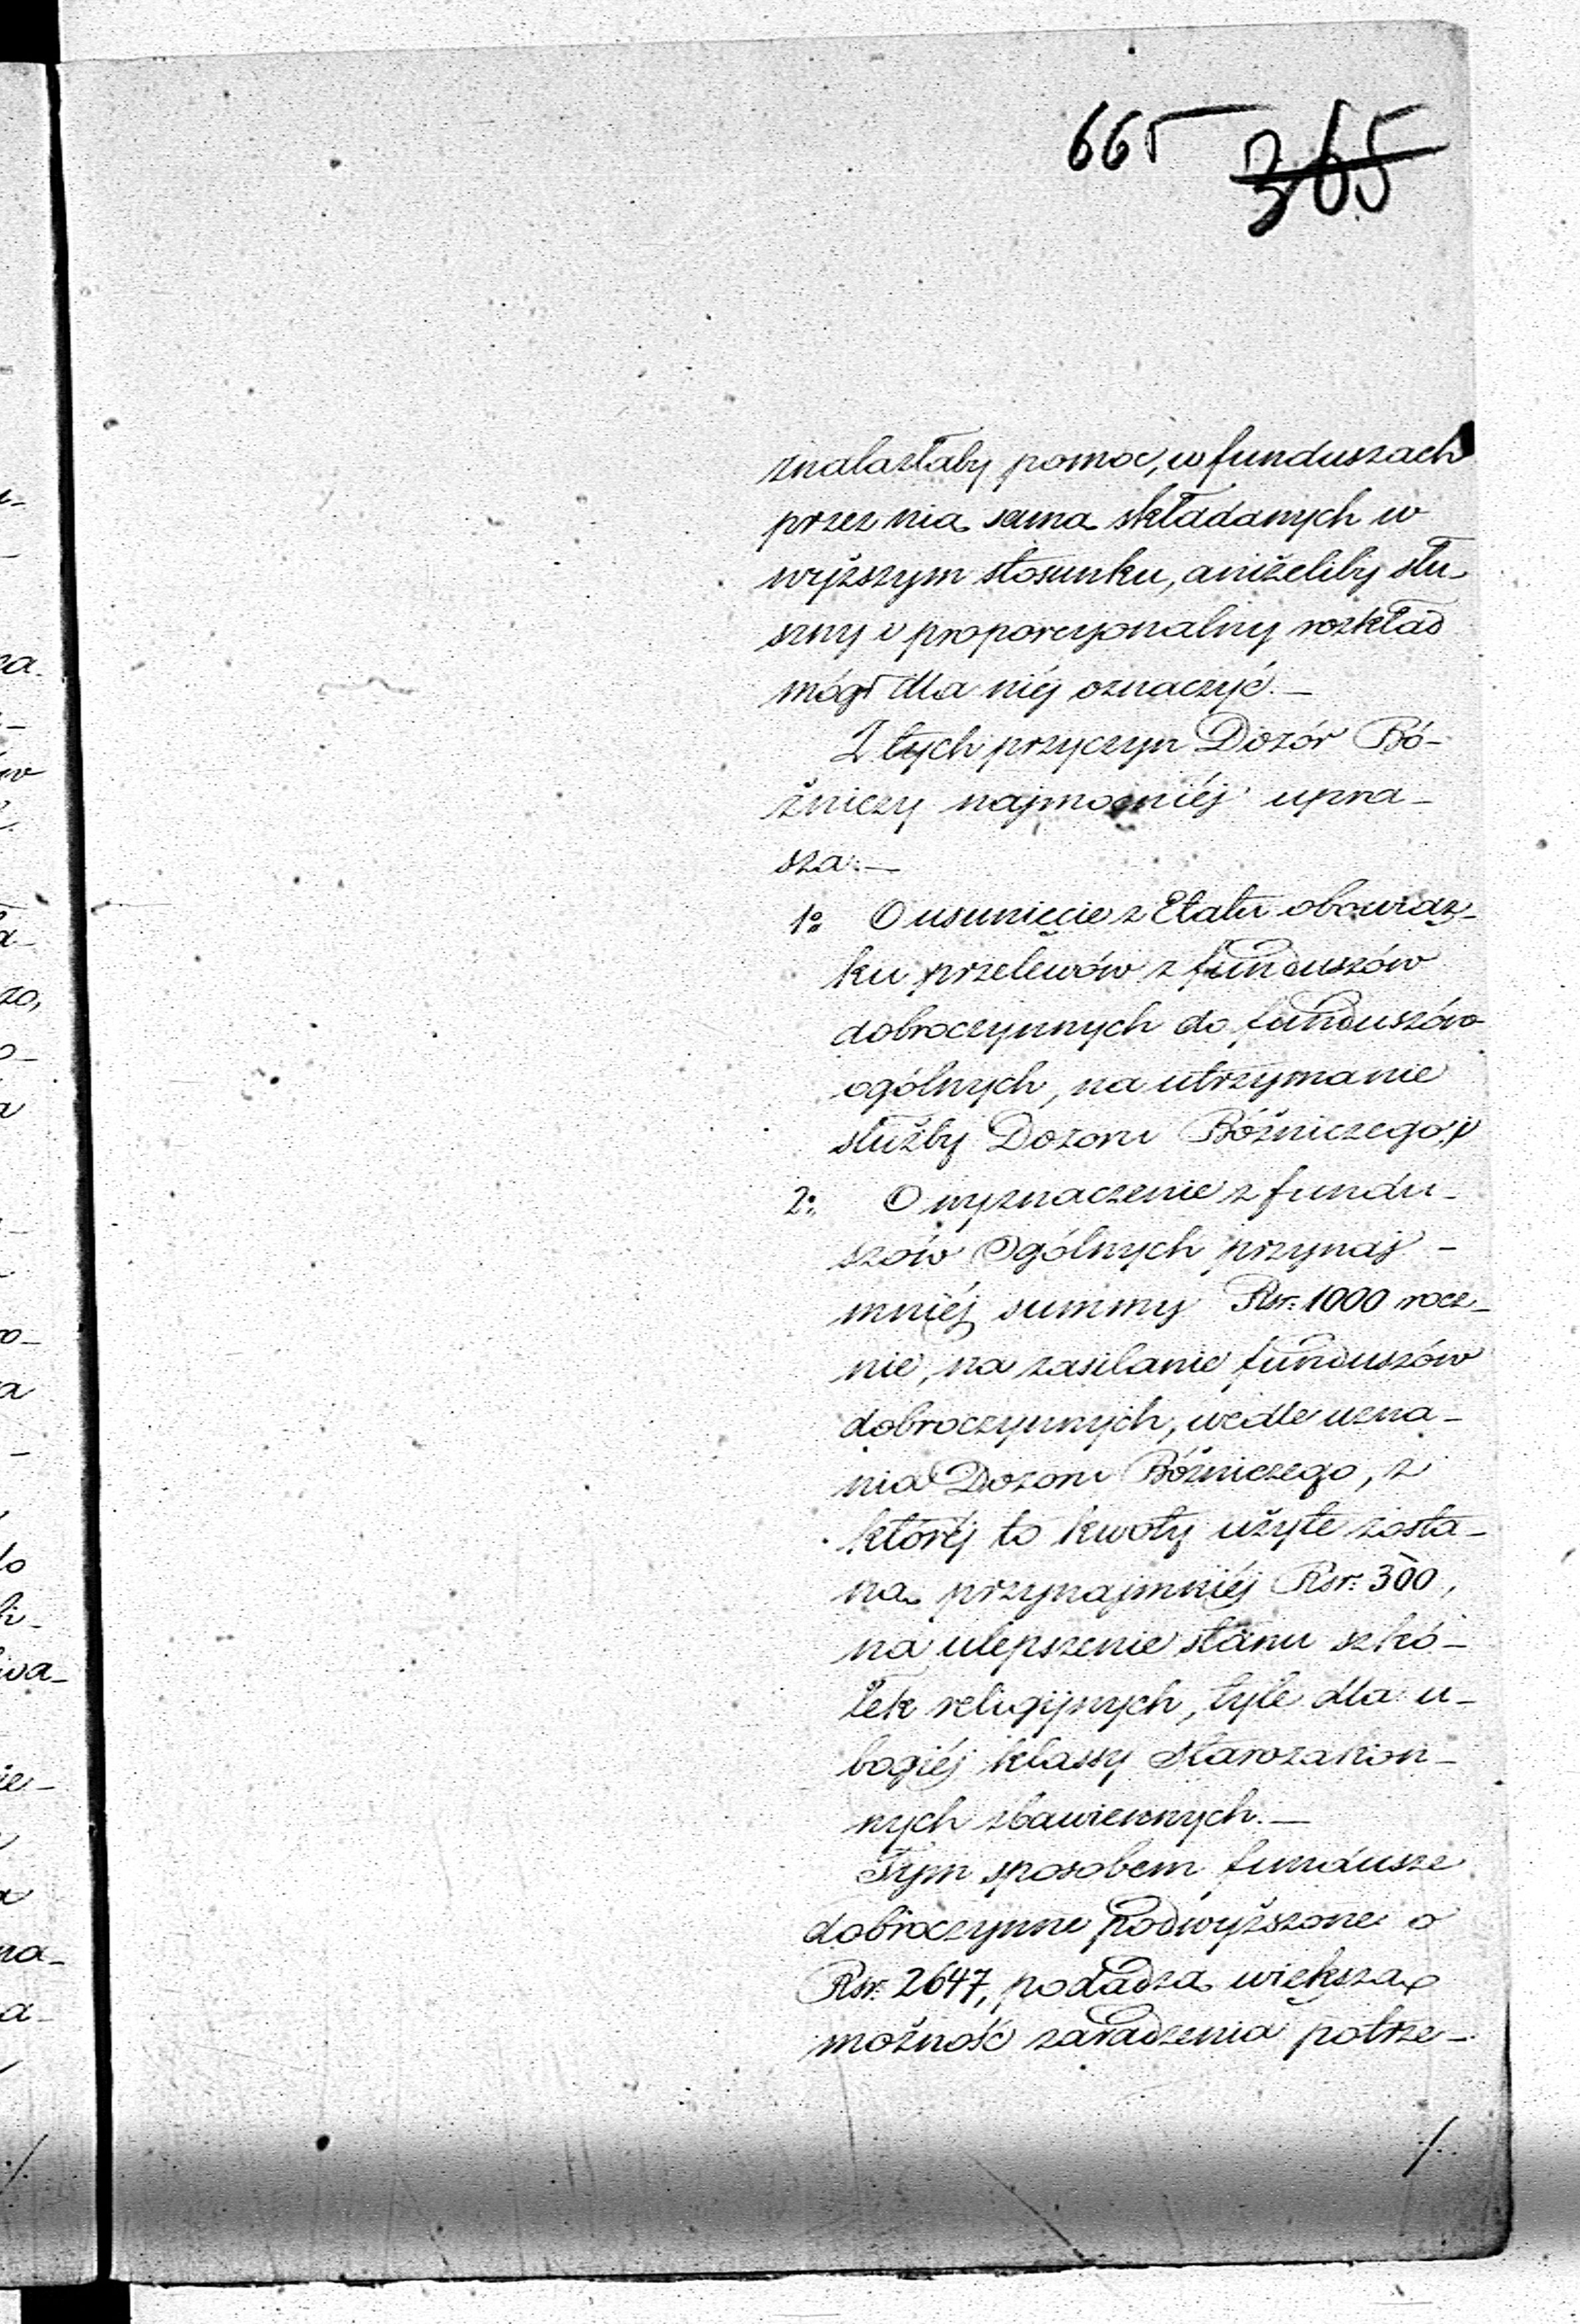 665 365
znalazłaby pomoc, w funduszach
przez nią samą składanych w
wyższym stosunku, aniżeliby słu-
szny i proporcyonalny rozkład
mógł dla niéj oznaczyć.—
Z tych przyczyn Dozór Bó-
żniczy najmocniéj upra-
sza:—
1o O usunięcie z Etatu obowiąz-
ku przelewów z funduszów
dobroczynnych do funduszów
ogólnych, na utrzymanie
służby Dozoru Bóżniczego;
2o O wyznaczenie z fundu-
szów Ogólnych przynaj-
mniéj summy Rsr: 1000 rocz-
nie, na zasilanie funduszów
dobroczynnych, wedle uzna-
nia Dozoru Bóżniczego, z
któréj to kwoty użyte zosta-
ną przynajmniéj Rsr: 300,
na ulepszenie stanu szkó-
łek religijnych, tyle dla u-
bogiéj klassy Starozakon-
nych zbawiennych.—
Tym sposobem fundusze
dobroczynne podwyższone o
Rsr: 2647, podadzą większą
możność zaradzenia potrze-
./.